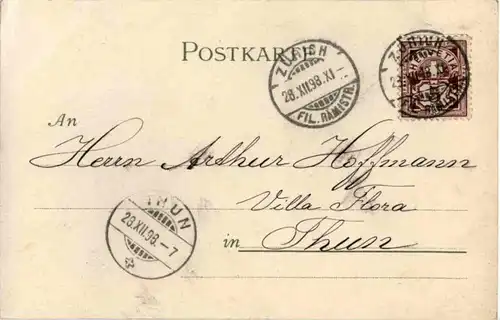 POSTKARTE
ZÜRICH
28.XII.98.XI-
FIL. RÄMISTR.
ZÜRICH
HELVETIA
An
Herrn Arthur Hoffmann
Villa Flora
in Thun
THUN
28.XII.98.-7